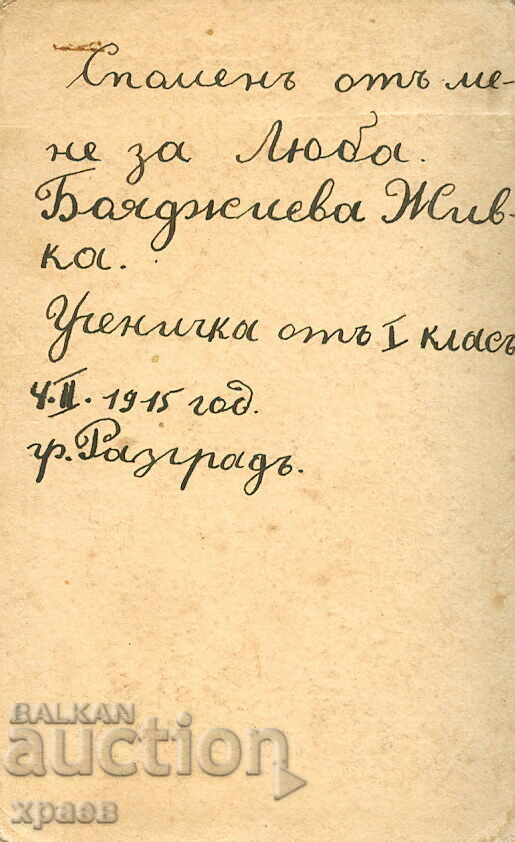 Спомень отъ ме-
не за Люба.
Бояджиева Жив-
ка.
Ученичка отъ I класъ
4.II.1915 год.
гр. Разградъ.
BALKAN
auction
храев